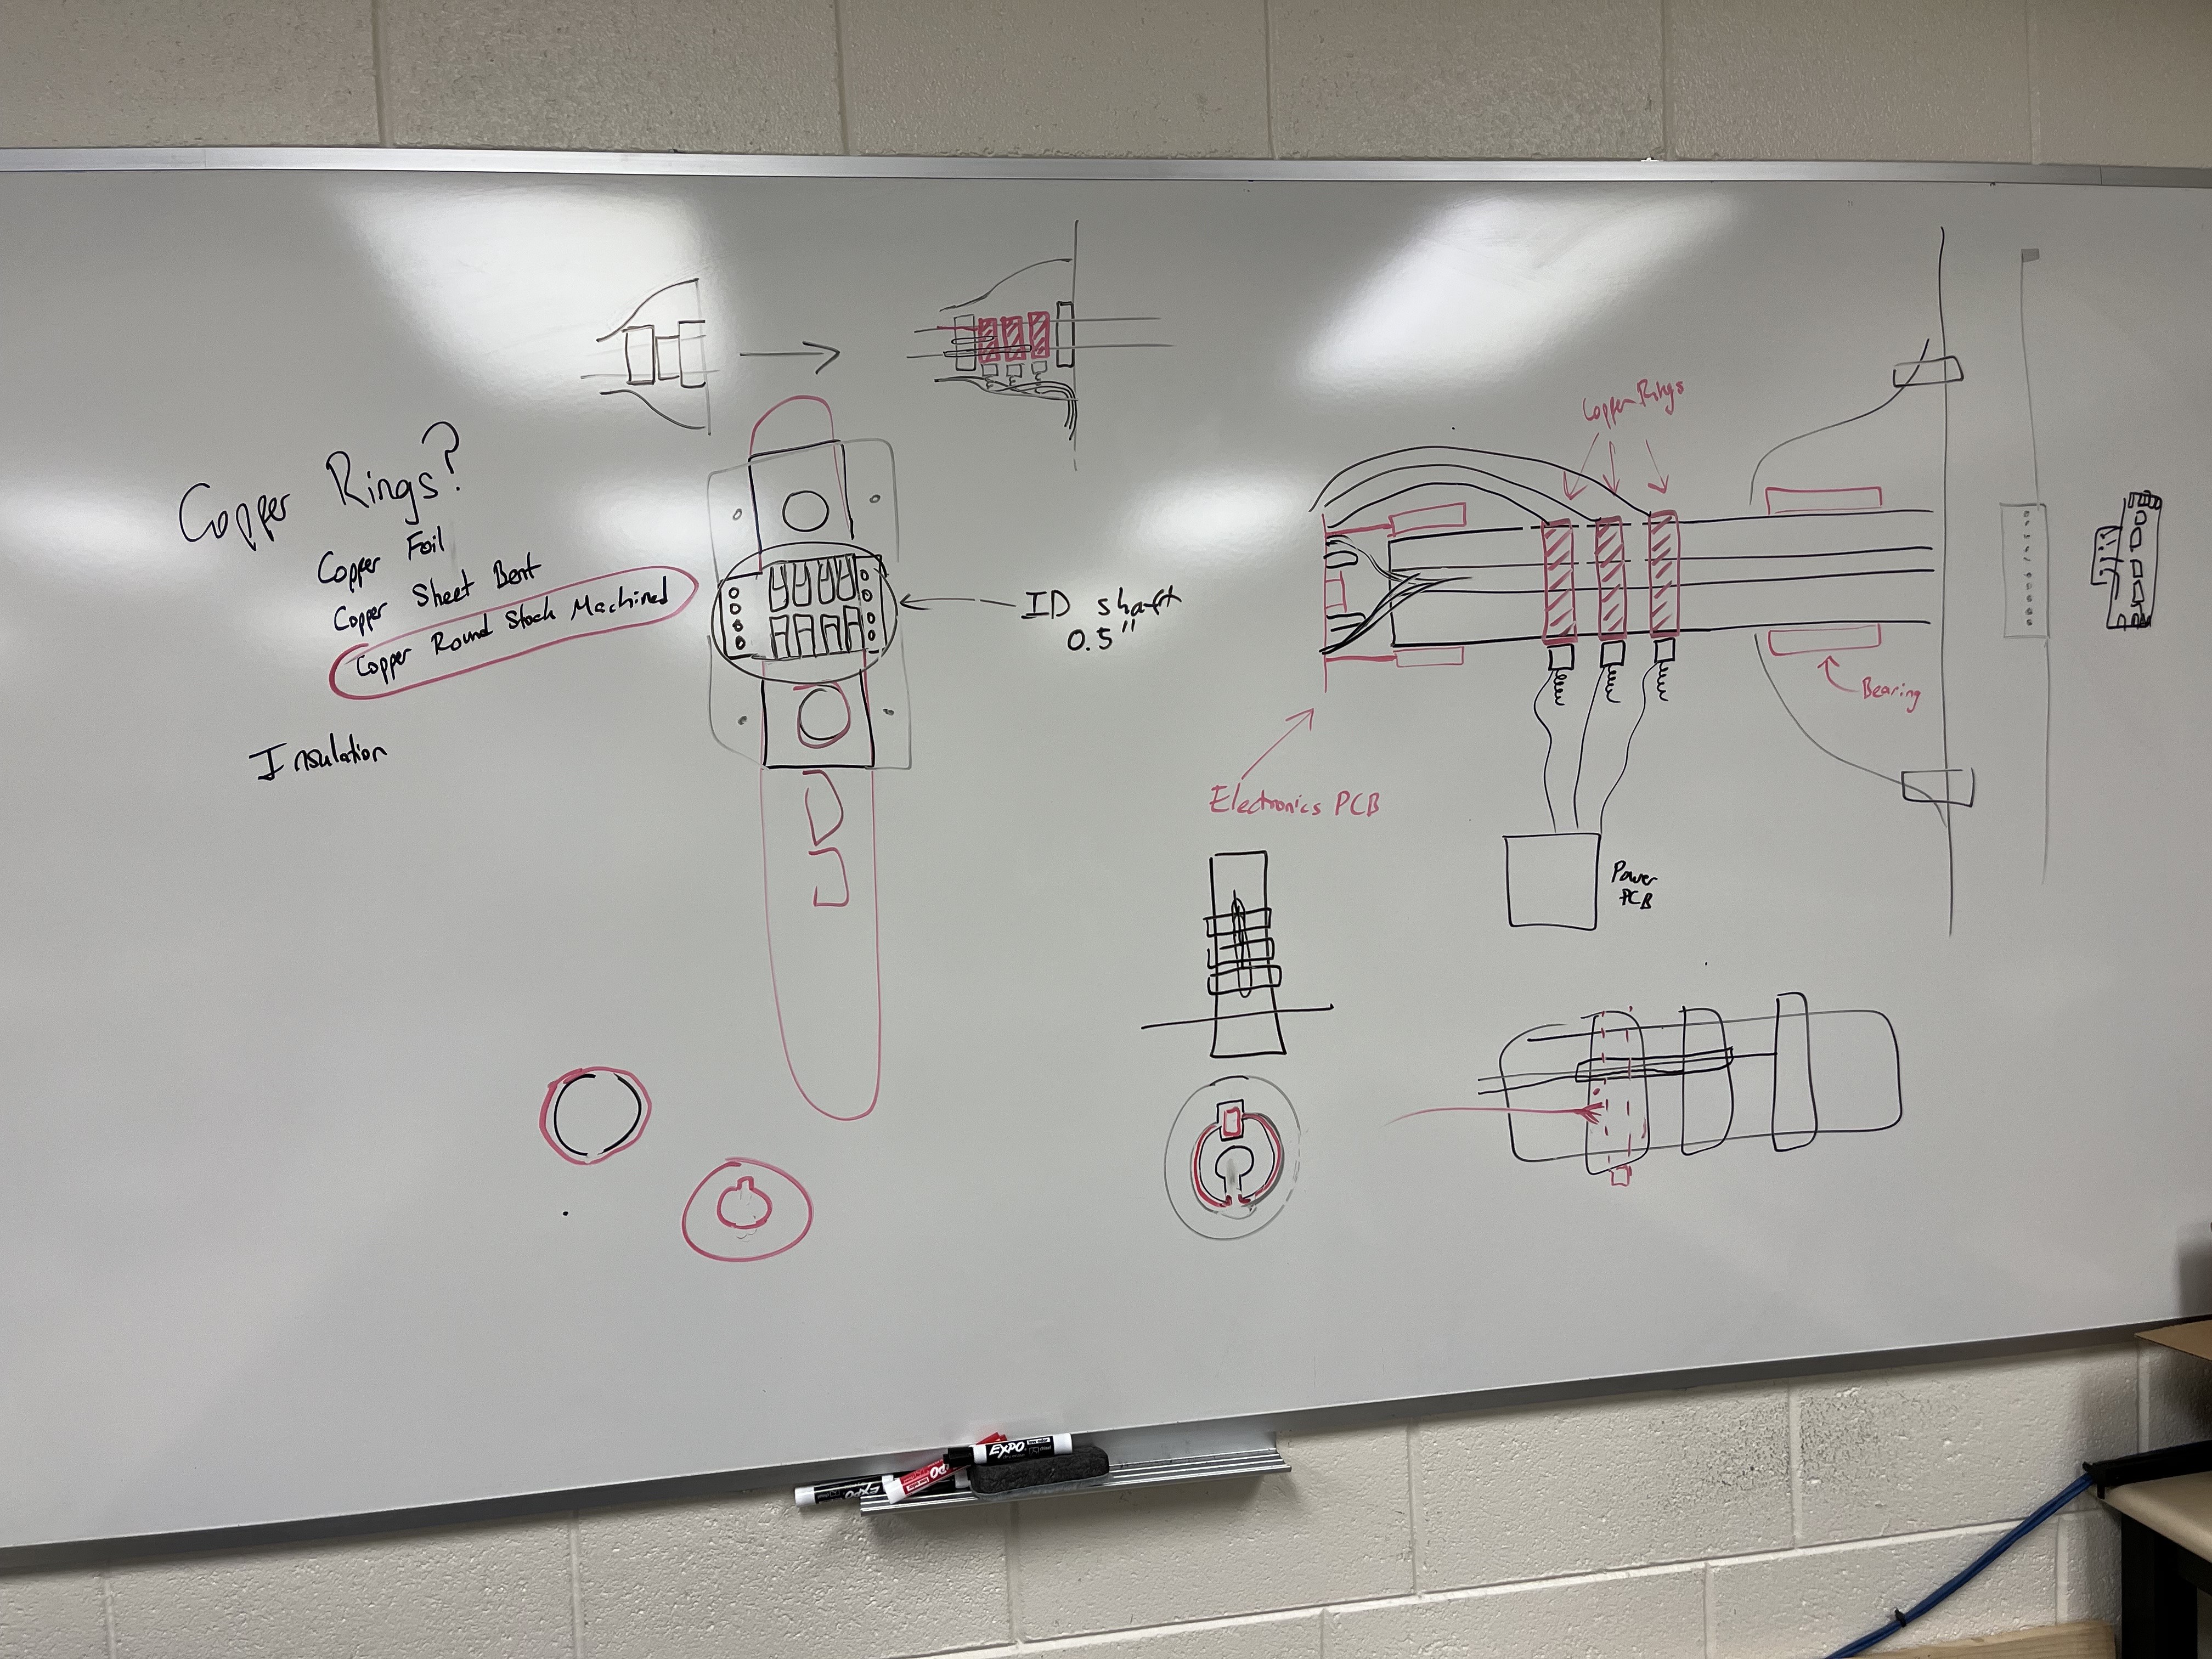 Copper Rings?
Copper Foil
Copper Sheet Bent
Copper Round Stock Machined
Insulation
ID shaft
0.5"
Copper Rings
Bearing
Electronics PCB
Power
PCB
EXPO
EXPO